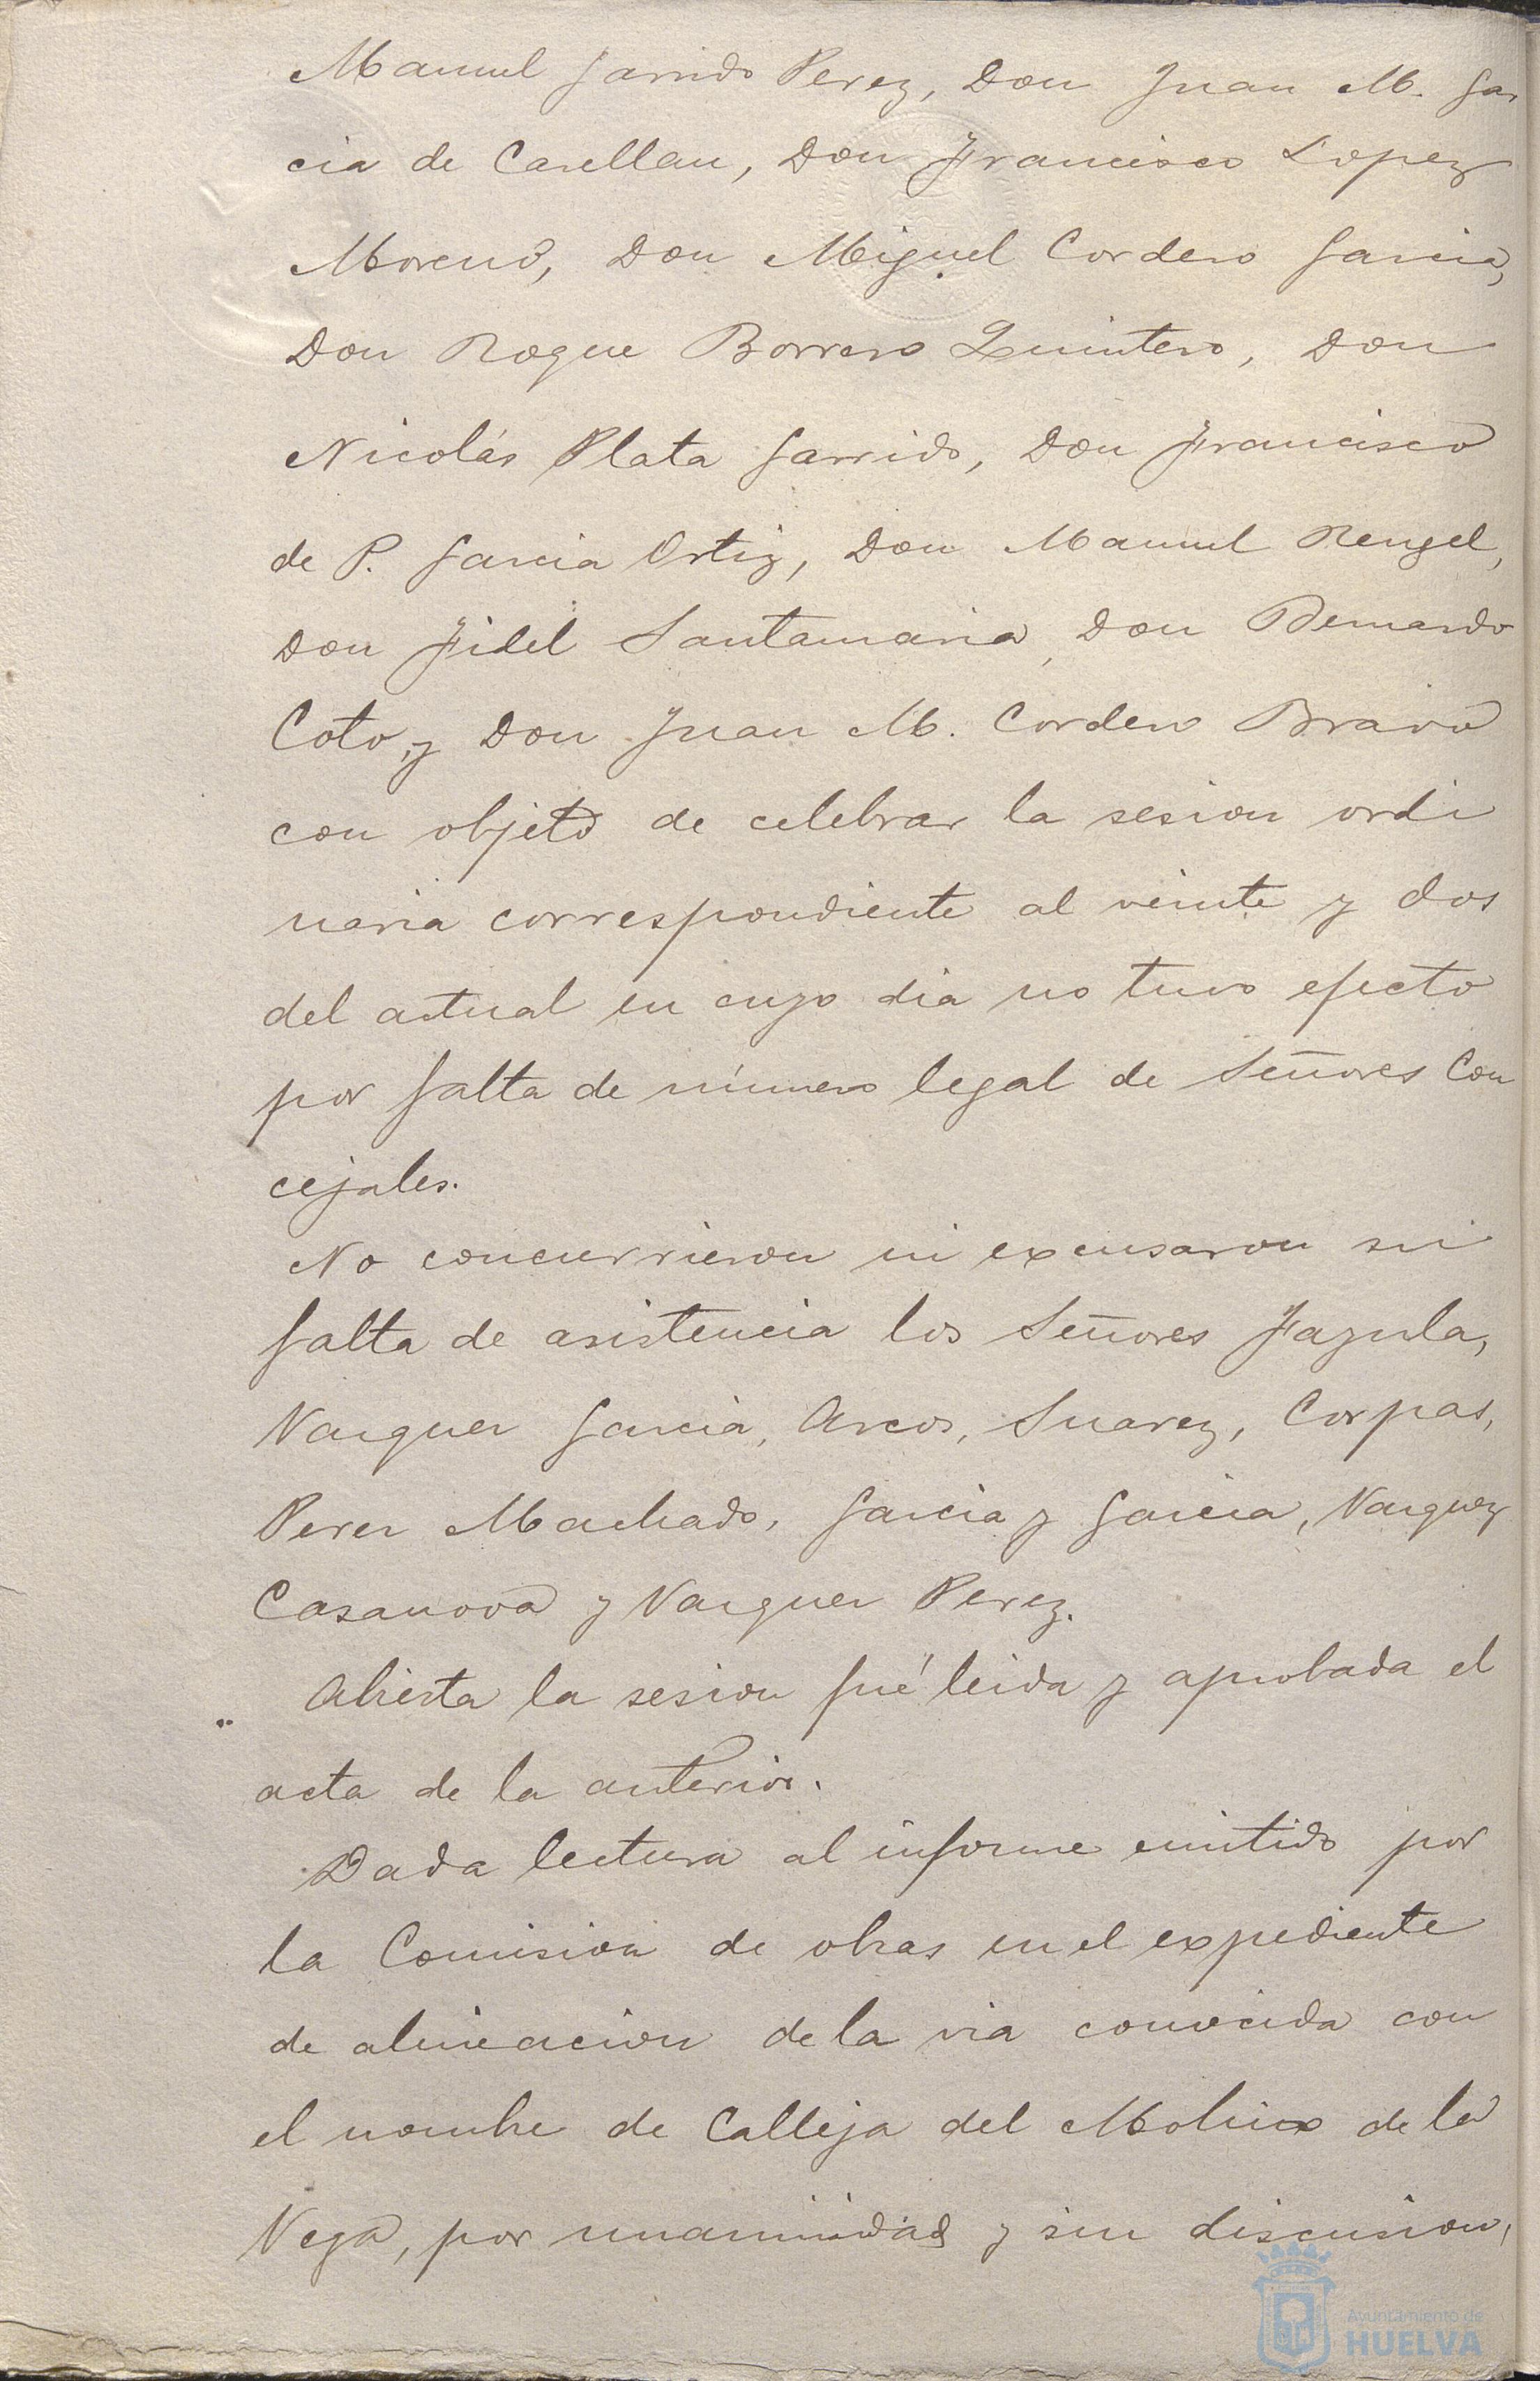 Manuel Garrido Perez, Don Juan M. Gar
cia de Casellau, Don Francisco Lopez
Moreno, Don Miguel Cordero Garcia,
Don Roque Borrero Quintero, Don
Nicolás Plata Garrido, Don Francisco
de P. Garcia Ortiz, Don Manuel Rengel,
Don Fidel Santamaria, Don Bernardo
Coto, y Don Juan M. Cordero Bravo
con objeto de celebrar la sesion ordi
naria correspondiente al veinte y dos
del actual en cuyo dia no tuvo efecto
por falta de número legal de Señores Con
cejales.
No concurrieron ni excusaron su
falta de asistencia los Señores Jazula,
Vazquez Garcia, Arcos, Suarez, Corpas,
Perez Machado, Garcia y Garcia, Vazquez
Casanova y Vazquez Perez.
Abierta la sesion fué leida y aprobada el
acta de la anterior.
Dada lectura al informe emitido por
la Comision de obras en el expediente
de alineacion de la via conocida con
el nombre de Calleja del Molino de la
Vega, por unanimidad y sin discusion,
Ayuntamiento de
HUELVA